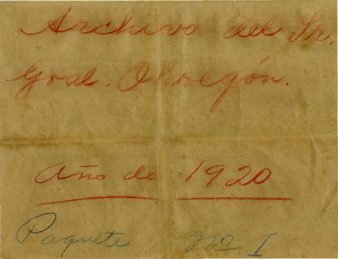 Archivo del Sr.
Gral. Obregón.
Año de 1920
Paquete I